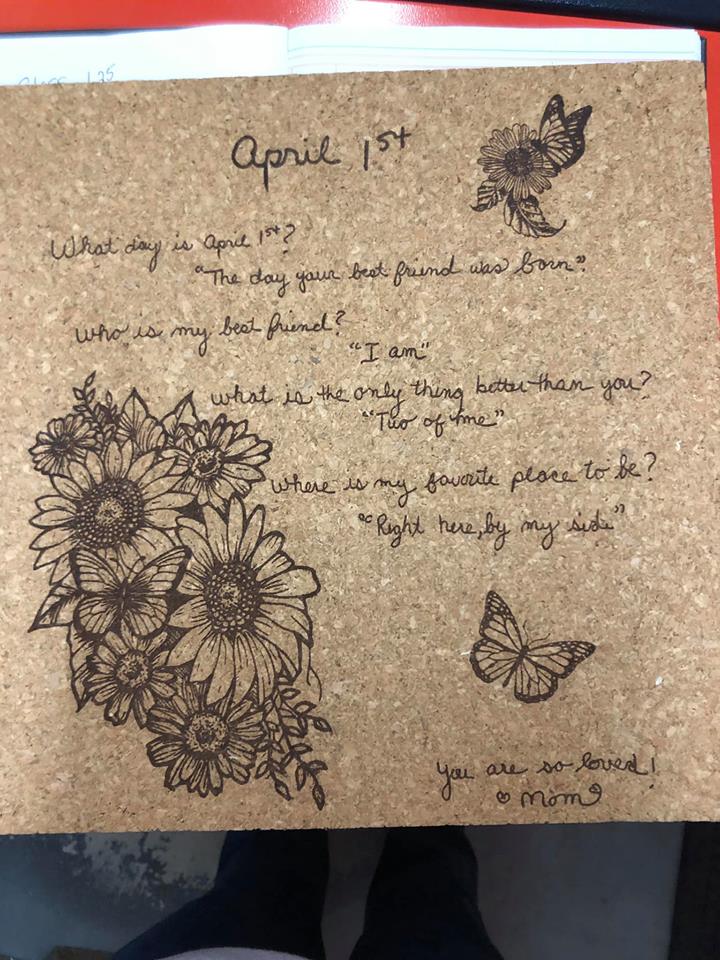 Class 135
April 1st
What day is April 1st?
"The day your best friend was born".
Who is my best friend?
"I am"
what is the only thing better than you?
"Two of me"
where is my favorite place to be?
"Right here, by my side"
you are so loved!
♡ Mom